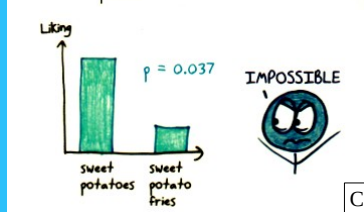 Liking
p = 0.037
IMPOSSIBLE
sweet potatoes
sweet potato fries
C